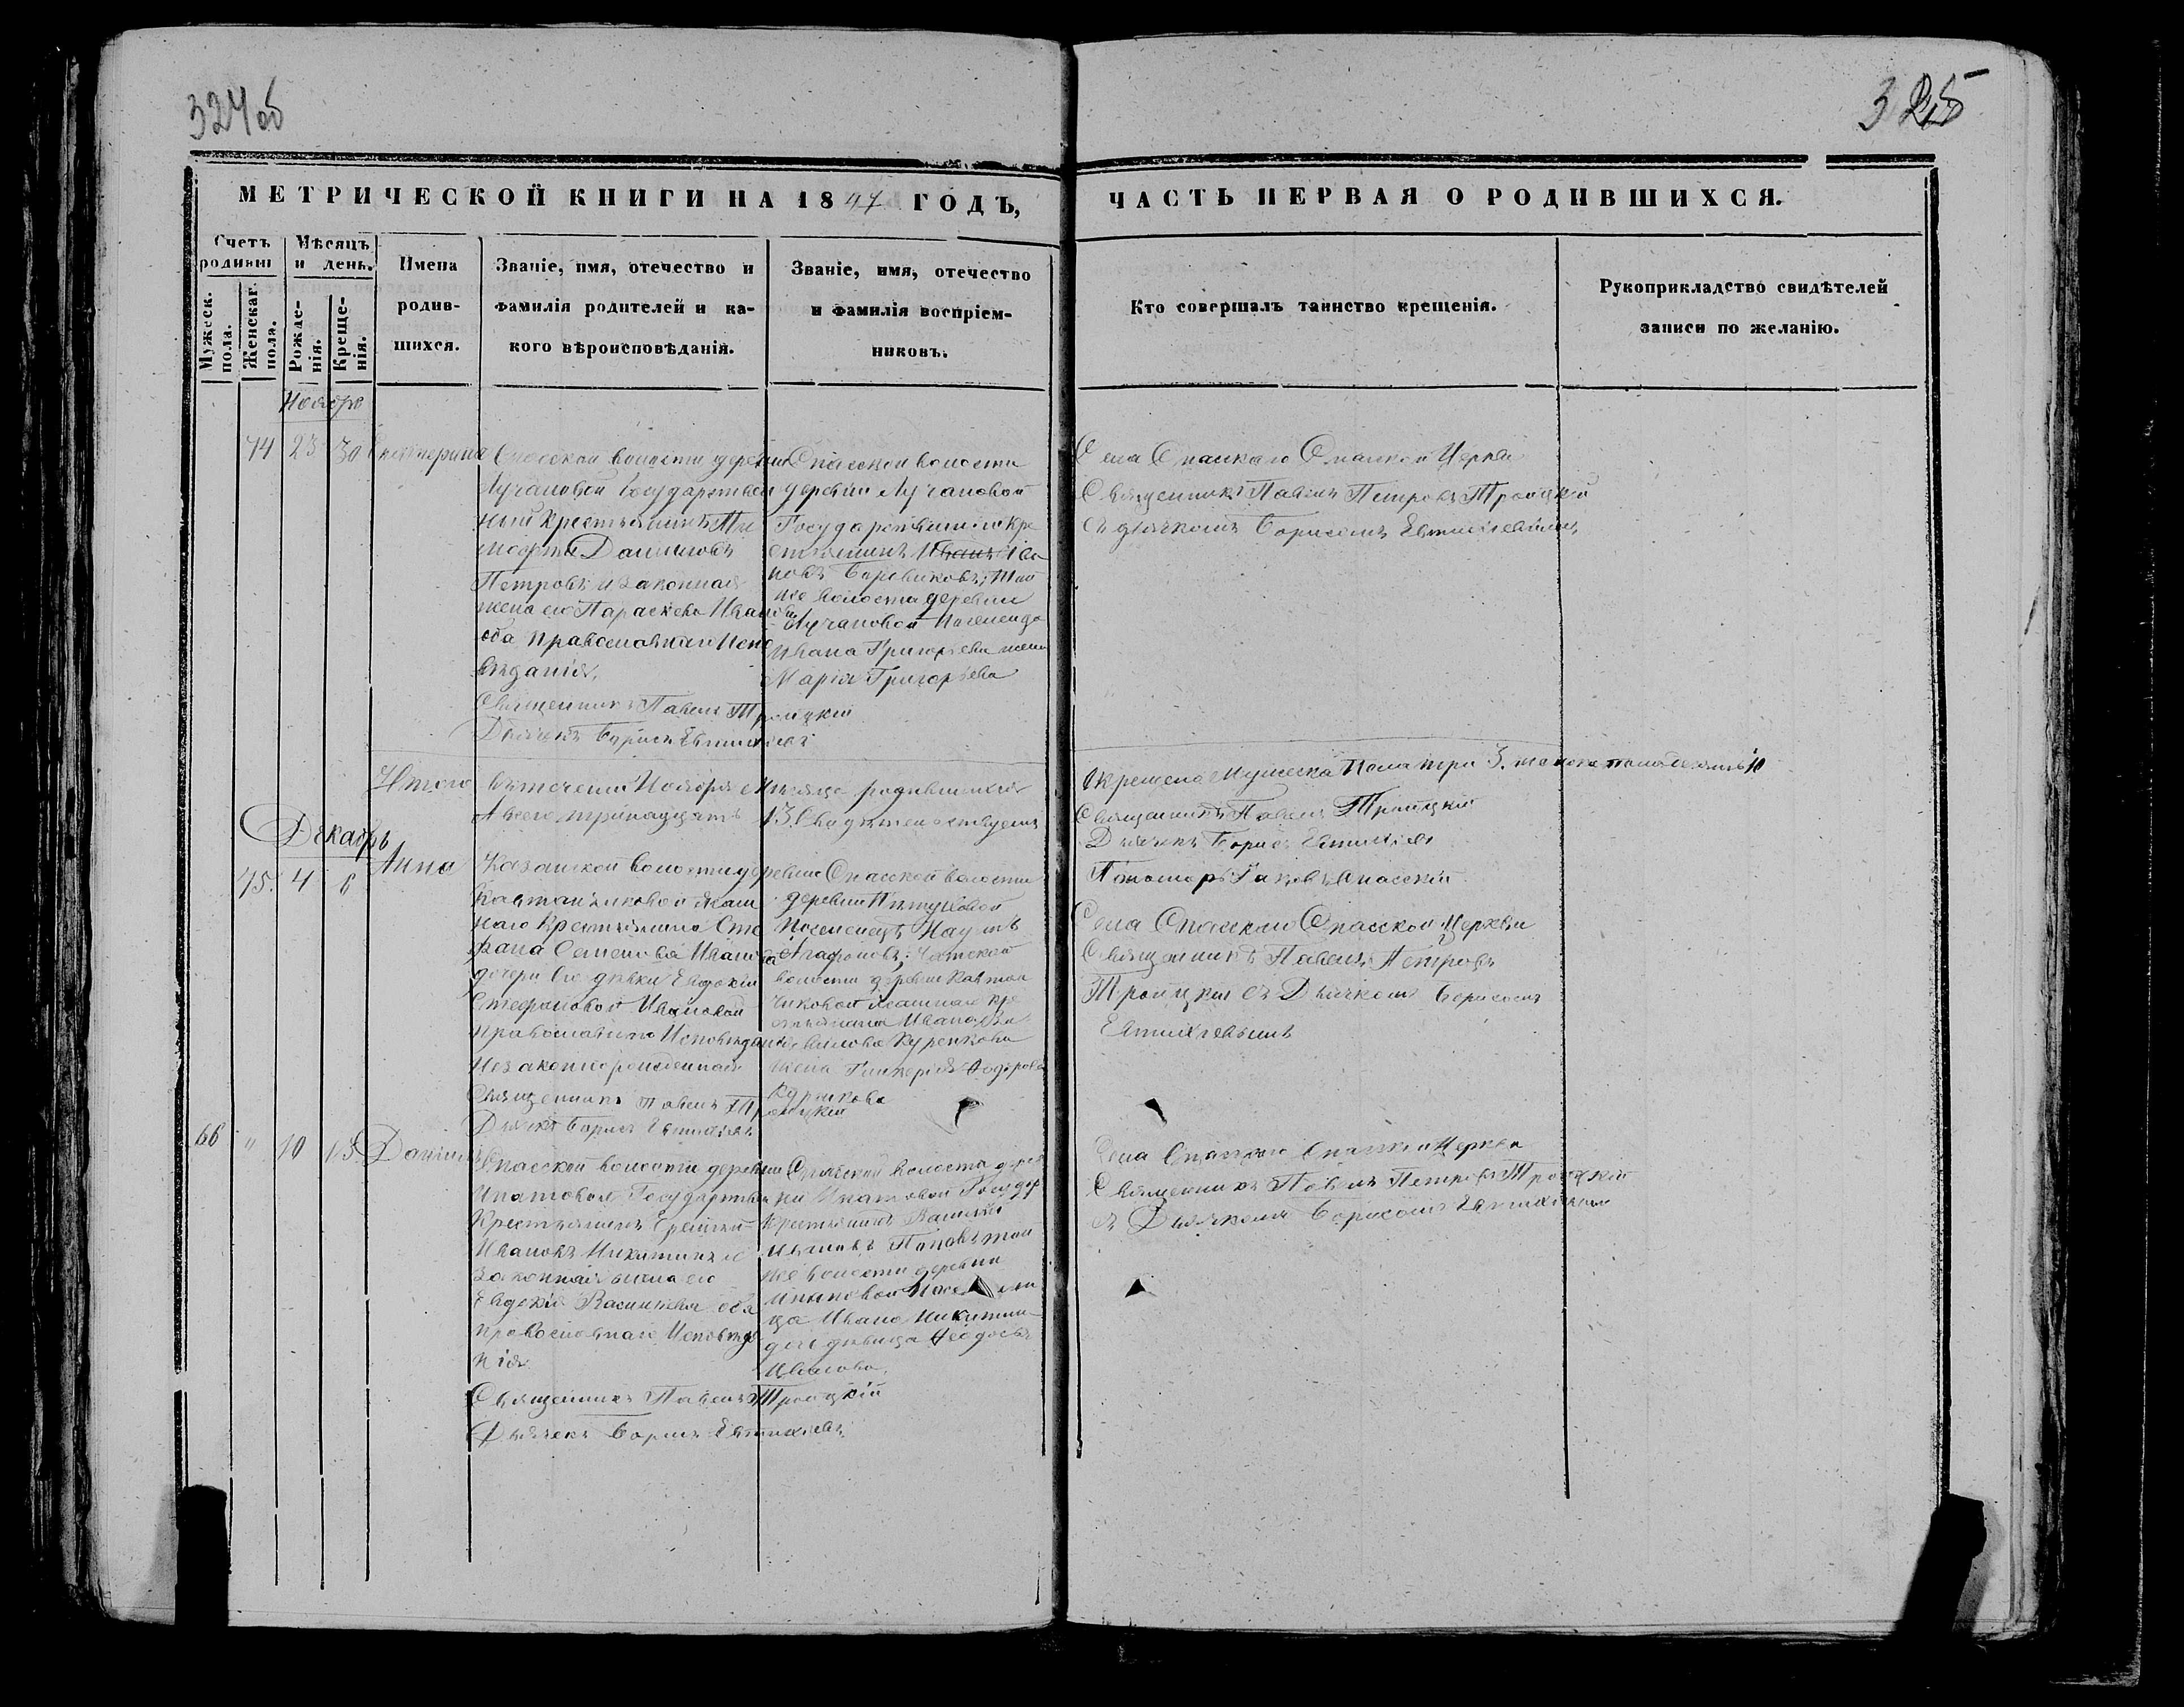 324 об
325
МЕТРИЧЕСКОЙ КНИГИ НА 1847 ГОДЪ,
ЧАСТЬ ПЕРВАЯ О РОДИВШИХСЯ.
Счетъ родивш
Мѣсяцъ и день.
Мужеск. пола.
Женскаг. пола.
Рожде-нія.
Креще-нія.
Имена
родив-
шихся.
Званіе, имя, отечество и
фамилія родителей и ка-
кого вѣроисповѣданія.
Званіе, имя, отечество
и фамилія воспріем-
никовъ.
Кто совершалъ таинство крещенія.
Рукоприкладство свидѣтелей
записи по желанію.
Ноябрь
74 23 30 Екатерина
Спасской волости деревни
Лучановой Государствен
ный Крестьянинъ Ти
мофти Даниловъ
Петровъ и законная
жена его Параскева Иванова
оба православнаго Испо
вѣданія.
Священникъ Павелъ Троицкій
Дьячекъ Борисъ Евтихіевъ
Спасской волости
деревни Лучановой
Государственный кре
стьянинъ Иванъ Ива
новъ Боровиковъ; той
же волости деревни
Лучановой Поселенца
Ивана Григорьева жена
Марія Григорьева
Села Спаскаго Спаской Церкви
Священникъ Павелъ Петровъ Троицкій
съ дьячкомъ Борисомъ Евтихіевымъ
Итого въ теченіи Ноября Мѣсяца родившихся
А всего тринадцать 13. Свидѣтельствуемъ
Окрещено Мужеска Пола три 3. женска пола десять 10
Священникъ Павелъ Троицкій
Дьячекъ Борисъ Евтихіевъ
Пономарь Іаковъ Спасскій
Декабрь
75. 4 6 Анна
Казанской волости деревни
Кафтанчиковой Ясаш
наго Крестьянина Сте
фана Семенова Иванова
дочери его дѣвки Евдокіи
Стефановой Ивановой
Православнаго Исповѣданія
Незаконнорожденная
Священникъ Павелъ Троицкій
Дьячекъ Борисъ Евтихіевъ
Спасской волости
деревни Пѣтуховой
Поселенецъ Наумъ
Агафоновъ; Чатской
волости деревни Кафтан
чиковой Ясашнаго кре
стьянина Ивана
Куренкова
жена Гликерія Федорова
Куренкова
Села Спаскаго Спасской Церкви
Священникъ Павелъ Петровъ
Троицкій съ Дьячкомъ Борисомъ
Евтихіевымъ
66 " 10 13 Даніилъ
Спасской волости деревни
Ипатовой Государствен
Крестьянинъ Григорій
Ивановъ Никитинъ и
законная жена его
Евдокія Васильева оба
Православнаго Исповѣда
нія
Священникъ Павелъ Троицкій
Дьячекъ Борисъ Евтихіевъ
Спасской волости дерев
ни Ипатовой Государ
Крестьянинъ Василій
Ивановъ Поповъ той
же волости деревни
Ипатовой Поселен
ца Ивана Никитина
дочь дѣвица Феодосья
Иванова.
Села Спаскаго Спаской Церкви
Священникъ Павелъ Петровъ Троицкій
съ Дьячкомъ Борисомъ Евтихіевымъ